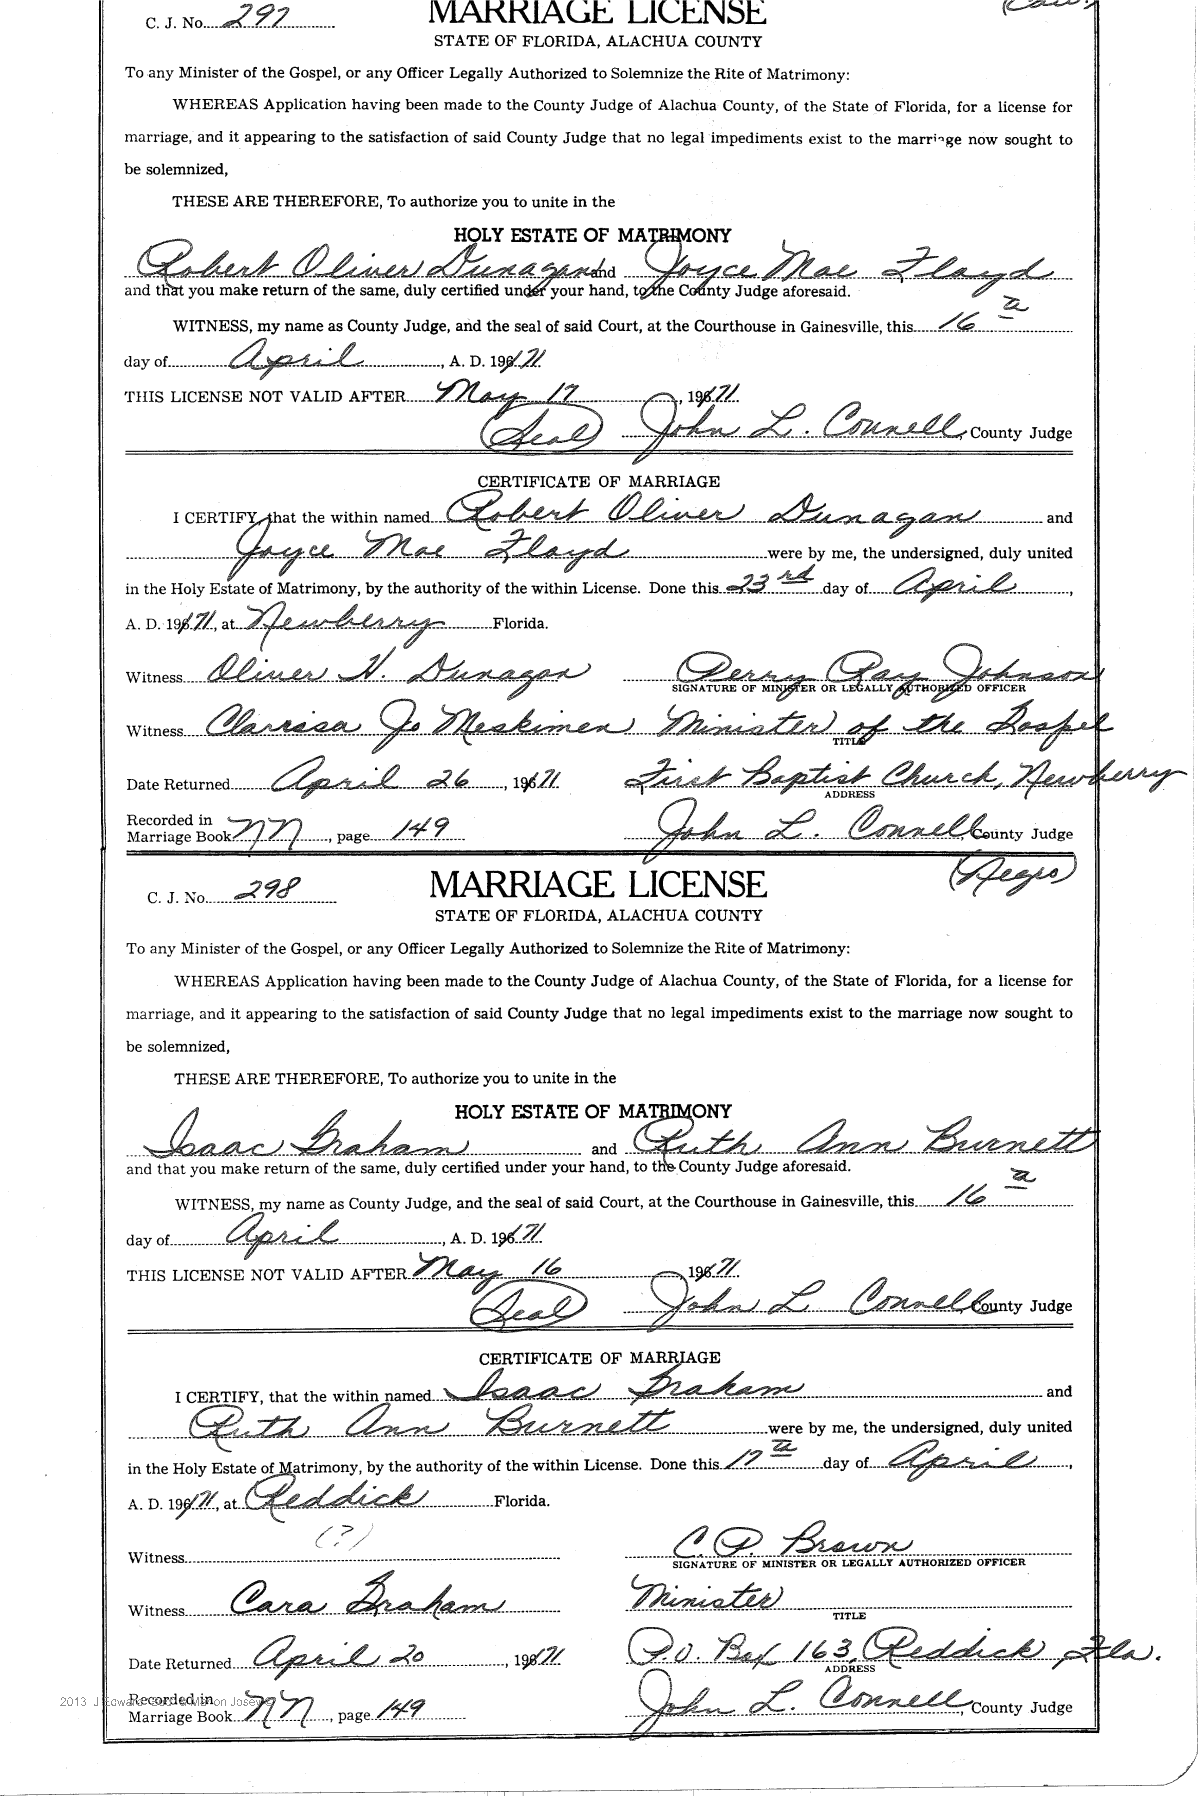 C. J. No. 297
MARRIAGE LICENSE
STATE OF FLORIDA, ALACHUA COUNTY
To any Minister of the Gospel, or any Officer Legally Authorized to Solemnize the Rite of Matrimony:
WHEREAS Application having been made to the County Judge of Alachua County, of the State of Florida, for a license for
marriage, and it appearing to the satisfaction of said County Judge that no legal impediments exist to the marriage now sought to
be solemnized,
THESE ARE THEREFORE, To authorize you to unite in the
HOLY ESTATE OF MATRIMONY
Robert Oliver Dunagan and Joyce Mae Floyd
and that you make return of the same, duly certified under your hand, to the County Judge aforesaid.
WITNESS, my name as County Judge, and the seal of said Court, at the Courthouse in Gainesville, this 16
day of April, A. D. 1971
THIS LICENSE NOT VALID AFTER May 17, 1971
(Seal) John L. Connell, County Judge
CERTIFICATE OF MARRIAGE
I CERTIFY, that the within named Robert Oliver Dunagan and
Joyce Mae Floyd were by me, the undersigned, duly united
in the Holy Estate of Matrimony, by the authority of the within License. Done this 23rd day of April,
A. D. 1971, at Newberry Florida.
Witness Oliver H. Dunagan Perry Ray Johnson
SIGNATURE OF MINISTER OR LEGALLY AUTHORIZED OFFICER
Witness Clarissa Jo Meskimen Minister of the Gospel
TITLE
Date Returned April 26, 1971 First Baptist Church, Newberry
ADDRESS
Recorded in
Marriage Book NN, page 149 John L. Connell, County Judge
(Negro)
C. J. No. 298
MARRIAGE LICENSE
STATE OF FLORIDA, ALACHUA COUNTY
To any Minister of the Gospel, or any Officer Legally Authorized to Solemnize the Rite of Matrimony:
WHEREAS Application having been made to the County Judge of Alachua County, of the State of Florida, for a license for
marriage, and it appearing to the satisfaction of said County Judge that no legal impediments exist to the marriage now sought to
be solemnized,
THESE ARE THEREFORE, To authorize you to unite in the
HOLY ESTATE OF MATRIMONY
Isaac Graham and Ruth Ann Burnett
and that you make return of the same, duly certified under your hand, to the County Judge aforesaid.
WITNESS, my name as County Judge, and the seal of said Court, at the Courthouse in Gainesville, this 16
day of April, A. D. 1971
THIS LICENSE NOT VALID AFTER May 16 1971
(Seal) John L Connell County Judge
CERTIFICATE OF MARRIAGE
I CERTIFY, that the within named Isaac Graham and
Ruth Ann Burnett were by me, the undersigned, duly united
in the Holy Estate of Matrimony, by the authority of the within License. Done this 17 day of April,
A. D. 1971, at Reddick Florida.
(?)
Witness C. P. Brown
SIGNATURE OF MINISTER OR LEGALLY AUTHORIZED OFFICER
Witness Cara Graham Minister
TITLE
Date Returned April 20, 1971 P.O. Box 163, Reddick, Fla.
ADDRESS
Recorded in
Marriage Book NN, page 149 John L. Connell, County Judge
2013